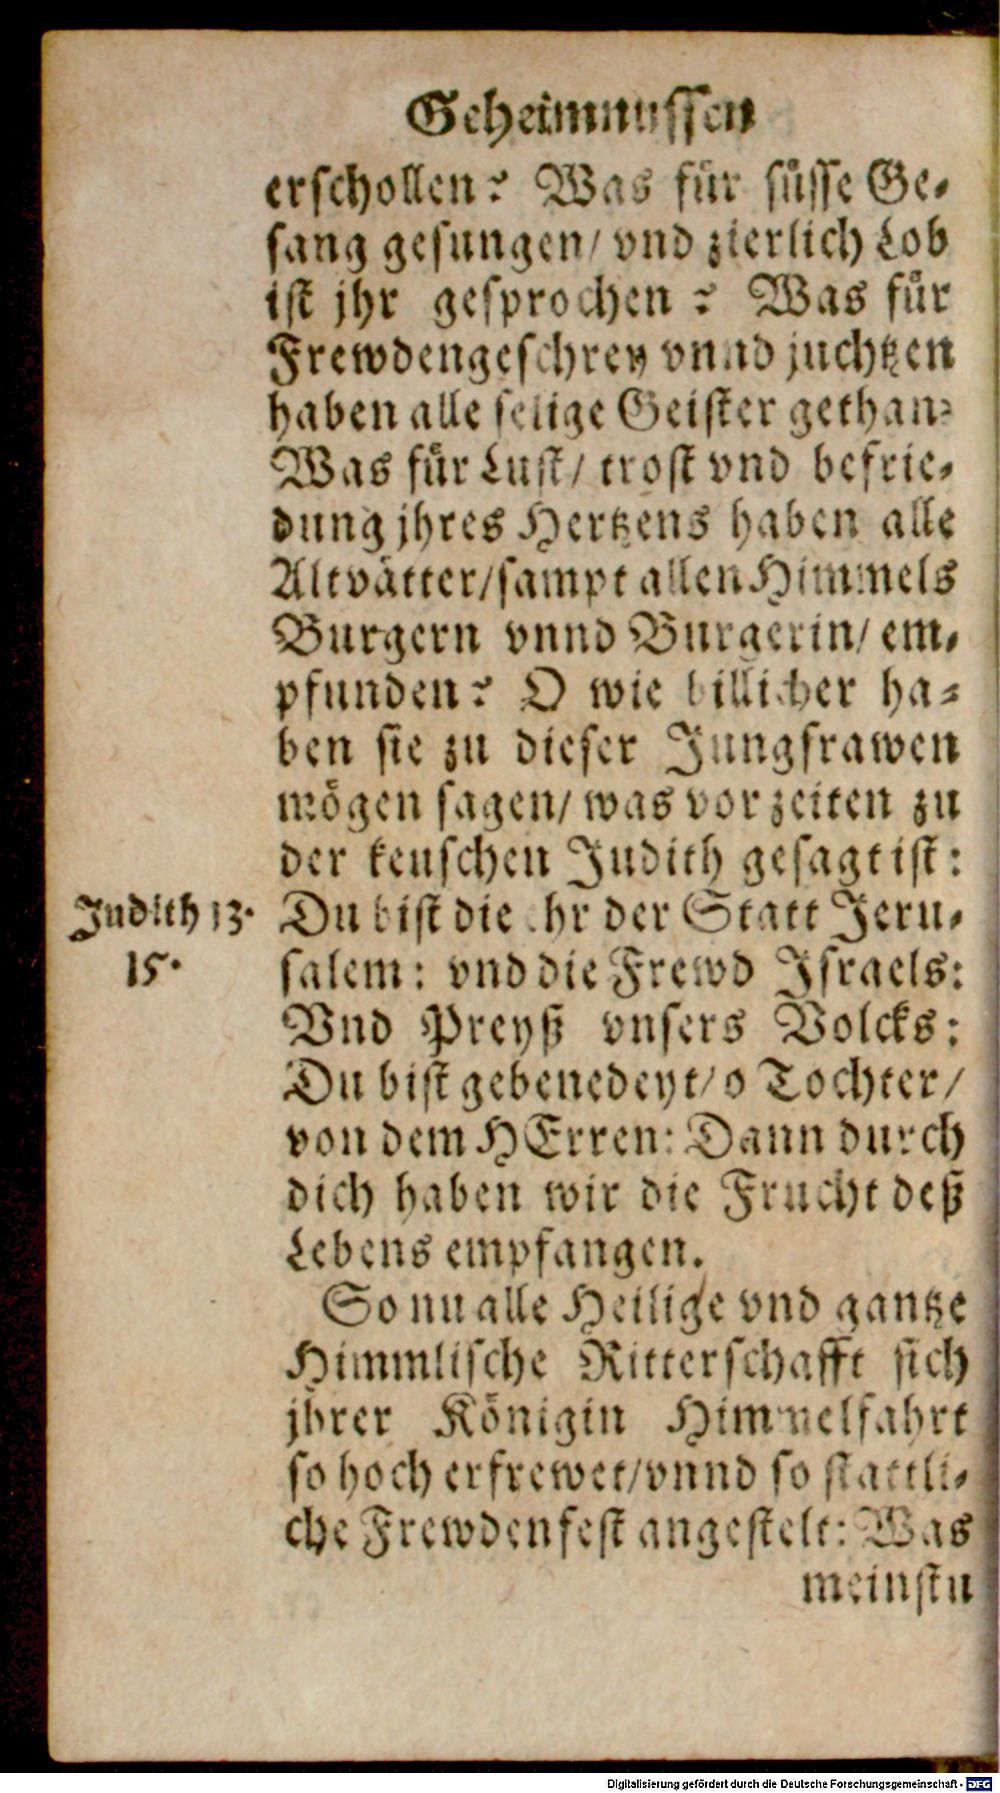 Geheimnussen
erschollen? Was für süsse Ge-
sang gesungen/ vnd zierlich Lob
ist jhr gesprochen? Was für
Frewdengeschrey vnnd juchtzen
haben alle selige Geister gethan?
Was für Lust/ trost vnd befrie-
dung jhres Hertzens haben alle
Altvätter/ sampt allen Himmels
Burgern vnnd Burgerin/ em-
pfunden? O wie billicher ha-
ben sie zu dieser Jungfrawen
mögen sagen/ was vor zeiten zu
der keuschen Judith gesagt ist:
Judith 13.
15.
Du bist die Ehr der Statt Jeru-
salem: vnd die Frewd Israels:
Vnd Preyß vnsers Volcks:
Du bist gebenedeyt/ o Tochter/
von dem HErren: Dann durch
dich haben wir die Frucht deß
Lebens empfangen.
So nu alle Heilige vnd gantze
Himmlische Ritterschafft sich
jhrer Königin Himmelfahrt
so hoch erfrewet/ vnnd so stattli-
che Frewdenfest angestelt: Was
meinstu
Digitalisierung gefördert durch die Deutsche Forschungsgemeinschaft - DFG